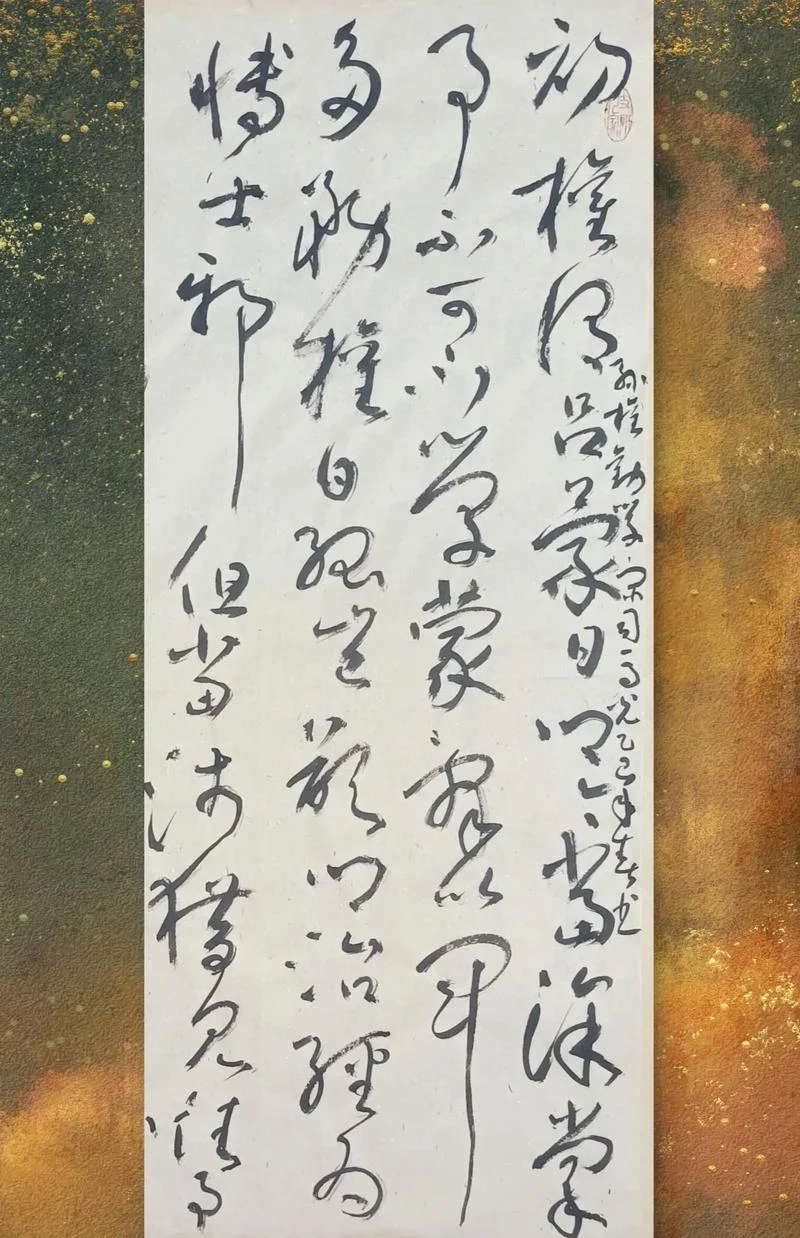 初權謂呂蒙曰卿今當涂掌
事不可不學蒙辭以軍
多務權曰孤豈欲卿治經為
博士邪但當涉獵見往事
孫權勸學宋司馬光乙巳年春書